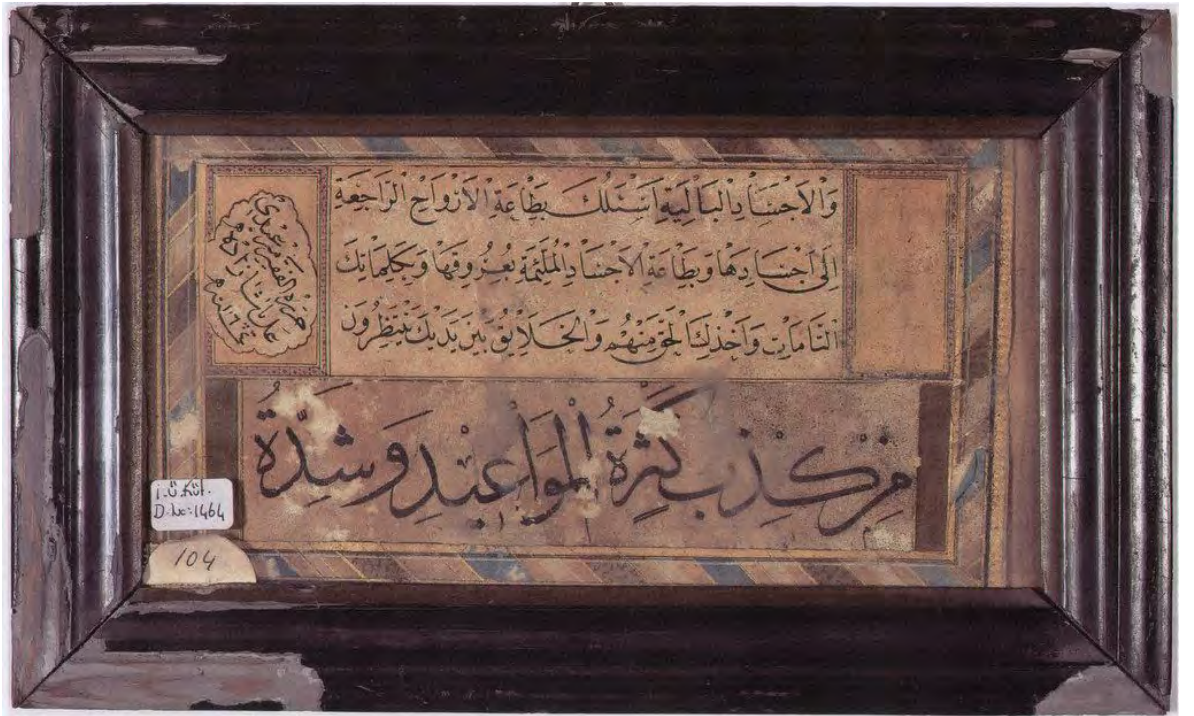 وَالْاَجْسَادِ الْبَالِيَةِ اَسْئَلُكَ بِطَاعَةِ الْاَرْوَاحِ الرَّاجِعَةِ
اِلٰى اَجْسَادِهَا وَبِطَاعَةِ الْاَجْسَادِ الْمُلْتَئِمَةِ بِعُرُوقِهَا وَبِكَلِمَاتِكَ
التَّامَّاتِ وَاَخْذِكَ الْحَقَّ مِنْهُمْ وَالْخَلَايِقُ بَيْنَ يَدَيْكَ يَنْتَظِرُونَ
حرره الفقير
مِنْ كَذِبٍ كَثْرَةُ الْمَوَاعِيْدِ وَشِدَّةُ
İ.Ü.Küt.
D.No:1464
104